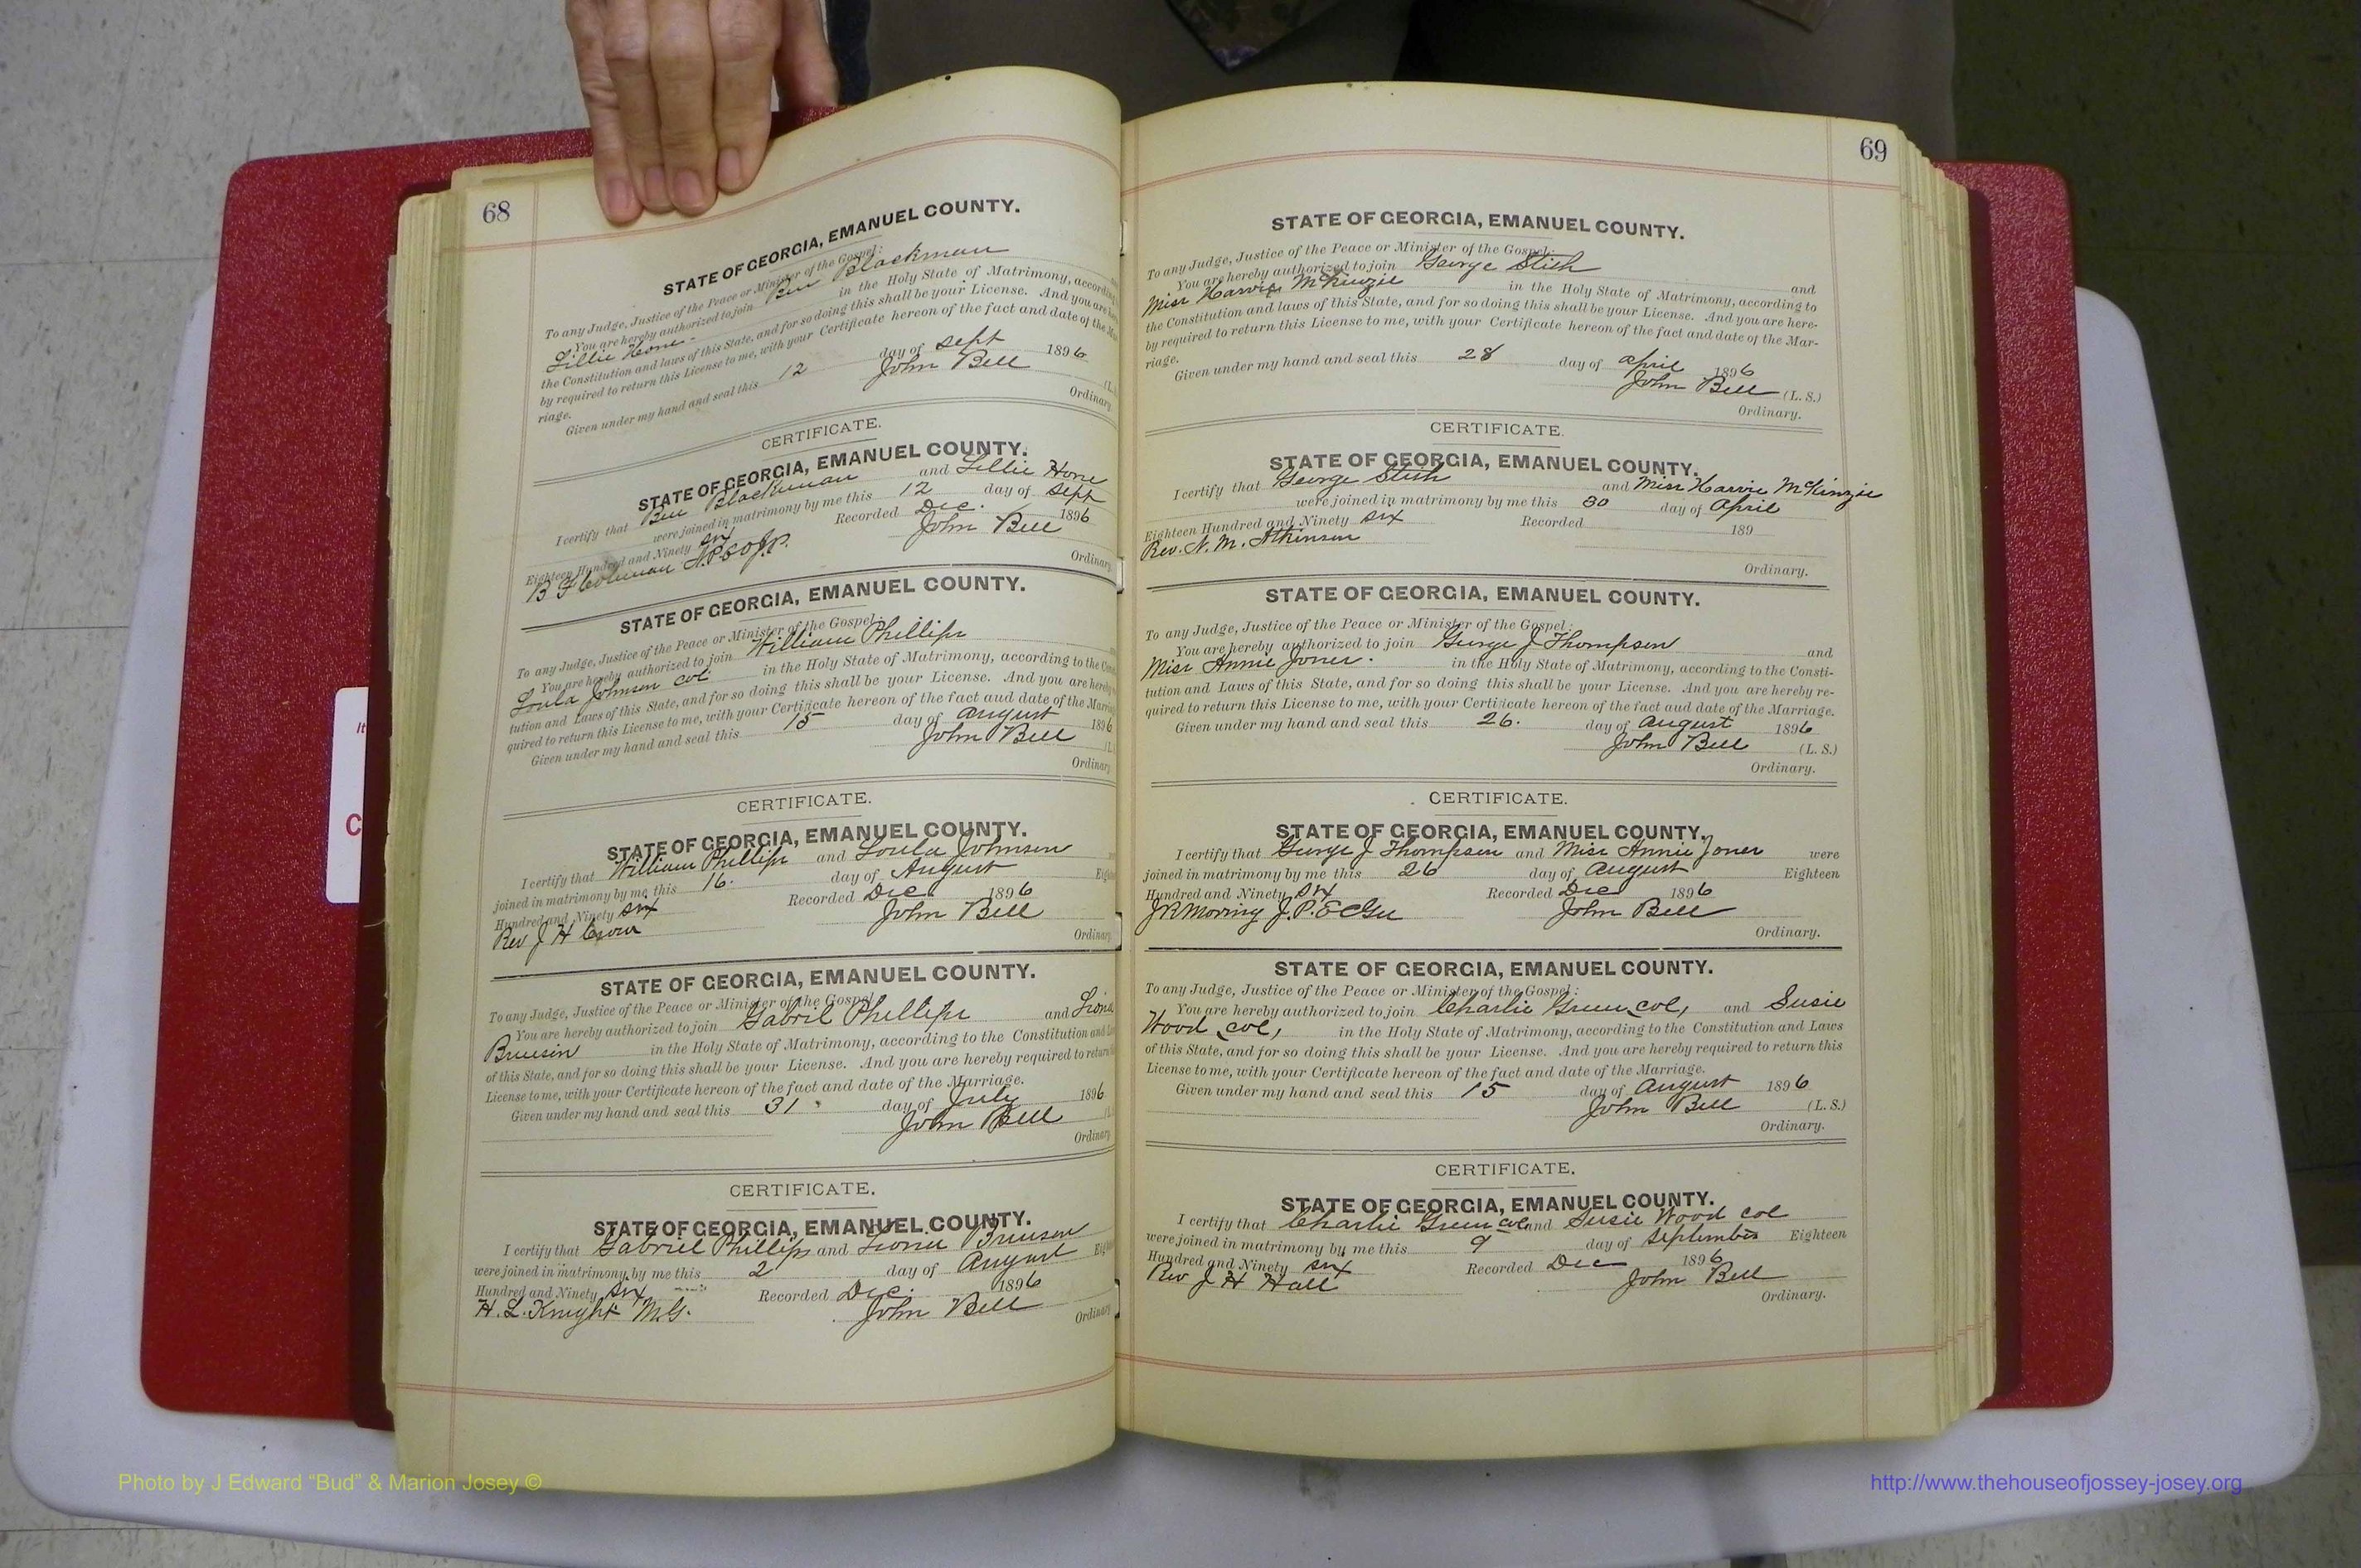 68
STATE OF GEORGIA, EMANUEL COUNTY.
To any Judge, Justice of the Peace or Minister of the Gospel:
You are hereby authorized to join Ben Blackman
Lillie Hone in the Holy State of Matrimony, according
the Constitution and laws of this State, and for so doing this shall be your License. And you are here-
by required to return this License to me, with your Certificate hereon of the fact and date of the Mar-
riage.
Given under my hand and seal this 12 day of Sept 1896
John Bell
Ordinary.
CERTIFICATE.
STATE OF GEORGIA, EMANUEL COUNTY.
I certify that Ben Blackman and Lillie Hone
were joined in matrimony by me this 12 day of Sept
Eighteen Hundred and Ninety six Recorded Dec. 1896
John Bell
Ordinary.
STATE OF GEORGIA, EMANUEL COUNTY.
To any Judge, Justice of the Peace or Minister of the Gospel:
You are hereby authorized to join William Phillips
Loula Johnson col in the Holy State of Matrimony, according to the Consti-
tution and Laws of this State, and for so doing this shall be your License. And you are hereby
quired to return this License to me, with your Certificate hereon of the fact and date of the Marriage
Given under my hand and seal this 15 day of August 1896
John Bell
Ordinary.
CERTIFICATE.
STATE OF GEORGIA, EMANUEL COUNTY.
I certify that William Phillips and Loula Johnson
joined in matrimony by me this 16. day of August
Hundred and Ninety six Recorded Dec 1896
Rev J H John Bell
Ordinary.
STATE OF GEORGIA, EMANUEL COUNTY.
To any Judge, Justice of the Peace or Minister of the Gospel:
You are hereby authorized to join Gabril Phillips and
in the Holy State of Matrimony, according to the Constitution and
of this State, and for so doing this shall be your License. And you are hereby required to return
License to me, with your Certificate hereon of the fact and date of the Marriage.
Given under my hand and seal this 31 day of July 1896
John Bell
Ordinary
CERTIFICATE.
STATE OF GEORGIA, EMANUEL COUNTY.
I certify that Gabriel Phillips and Brunson
were joined in matrimony by me this 2 day of August
Hundred and Ninety six Recorded Dec. 1896
H. L. Knight M.G. John Bell
Ordinary
69
STATE OF GEORGIA, EMANUEL COUNTY.
To any Judge, Justice of the Peace or Minister of the Gospel:
You are hereby authorized to join George Stith and
Miss Harvie McKinzie in the Holy State of Matrimony, according to
the Constitution and laws of this State, and for so doing this shall be your License. And you are here-
by required to return this License to me, with your Certificate hereon of the fact and date of the Mar-
riage.
Given under my hand and seal this 28 day of April 1896
John Bell (L. S.)
Ordinary.
CERTIFICATE.
STATE OF GEORGIA, EMANUEL COUNTY.
I certify that George Stith and Miss Harvie McKinzie
were joined in matrimony by me this 30 day of April
Eighteen Hundred and Ninety six Recorded 189
Rev. N. M. Atkinson
Ordinary.
STATE OF GEORGIA, EMANUEL COUNTY.
To any Judge, Justice of the Peace or Minister of the Gospel:
You are hereby authorized to join George J Thompson and
Miss Annie Jones. in the Holy State of Matrimony, according to the Consti-
tution and Laws of this State, and for so doing this shall be your License. And you are hereby re-
quired to return this License to me, with your Certificate hereon of the fact aud date of the Marriage.
Given under my hand and seal this 26. day of August 1896
John Bell (L. S.)
Ordinary.
CERTIFICATE.
STATE OF GEORGIA, EMANUEL COUNTY.
I certify that George J Thompson and Miss Annie Jones were
joined in matrimony by me this 26 day of August Eighteen
Hundred and Ninety six Recorded Dec 1896
J.P. John Bell
Ordinary.
STATE OF GEORGIA, EMANUEL COUNTY.
To any Judge, Justice of the Peace or Minister of the Gospel:
You are hereby authorized to join Charlie Green col, and Susie
Wood col, in the Holy State of Matrimony, according to the Constitution and Laws
of this State, and for so doing this shall be your License. And you are hereby required to return this
License to me, with your Certificate hereon of the fact and date of the Marriage.
Given under my hand and seal this 15 day of August 1896
John Bell (L. S.)
Ordinary.
CERTIFICATE.
STATE OF GEORGIA, EMANUEL COUNTY.
I certify that Charlie Green col and Susie Wood col
were joined in matrimony by me this 9 day of September Eighteen
Hundred and Ninety six Recorded Dec 1896
Rev J H Hall John Bell
Ordinary.
Photo by J Edward “Bud” & Marion Josey ©
http://www.thehouseofjossey-josey.org